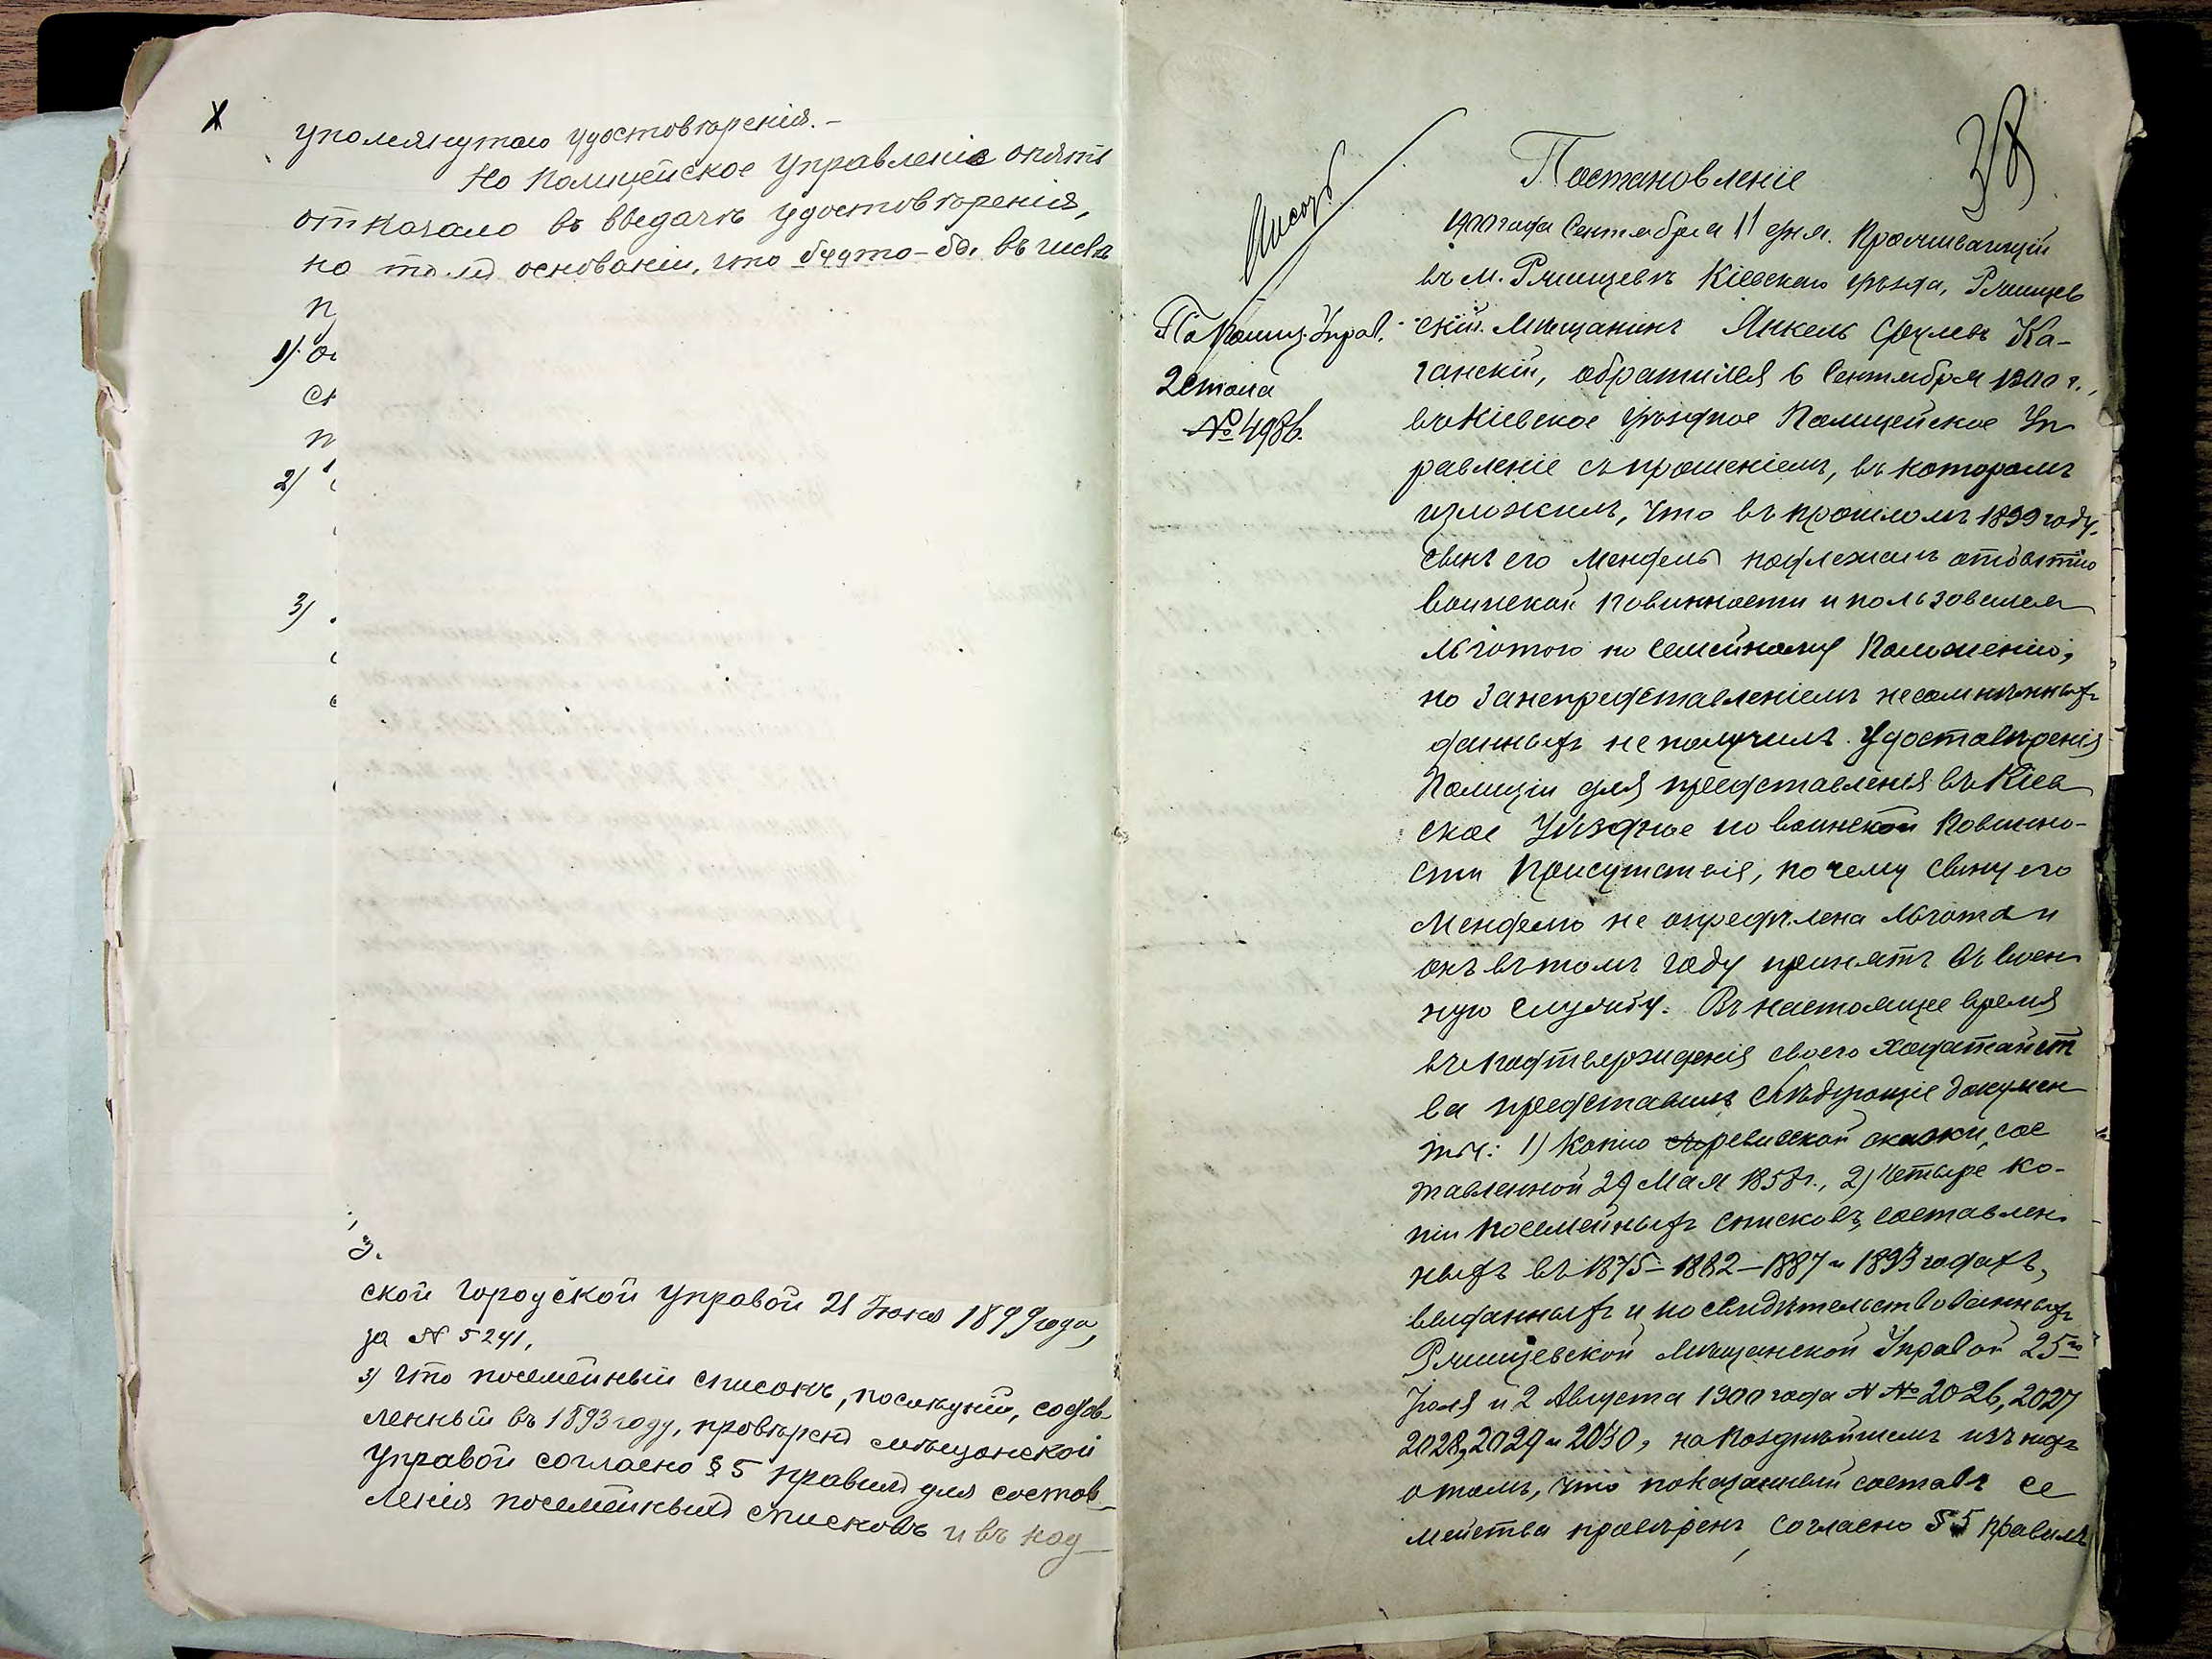 X
упомянутаго удостовѣренія.-
Но Полицейское Управленіе опять
отказало въ выдачѣ удостовѣренія,
на томъ основаніи, что будто-бы въ числѣ
п
1). ос
сн
п
2)
3)
3.
ской городской Управой 21 Іюня 1899 года,
за N 5241,
3) Что посемейный списокъ, послѣдній, состав-
ленный въ 1893 году, провѣренъ мѣщанской
Управой согласно § 5 правилъ для состав-
ленія посемейныхъ списковъ и въ над-
38
Постановленіе
1900 года Сентября 11 дня. Проживающій
въ м. Ржищевѣ Кіевскаго уѣзда, Ржищев
-скій Мѣщанинъ Янкель Ка-
ганскій, обратился 6 Сентября 1900 г.,
въ Кіевское Уѣздное Полицейское Уп
равленіе съ прошеніемъ, въ которомъ
изложилъ, что въ прошломъ 1899 году,
сынъ его Мендель подлежалъ отбытію
воинской повинности и пользовался
льготою по семейному Положенію,
но за непредставленіемъ несомнѣнныхъ
данныхъ не получилъ Удостовѣренія
Полиціи для представленія въ Кіев
ское Уѣздное по воинской Повинно-
сти Присутствія, почему сыну его
Менделю не опредѣлена льгота и
онъ въ томъ году принятъ въ воен
ную службу. Въ настоящее время
въ подтвержденія своего ходатайст
ва представилъ слѣдующіе докумен
ты: 1) Копію ревизской сказки, сос
тавленной 29 Мая 1858 г., 2) Четыре ко-
піи посемейныхъ списковъ, составлен
ныхъ въ 1875-1882-1887 и 1893 годахъ,
выданныхъ и посвидѣтельствованныхъ
Ржищевской Мѣщанской Управой 25го
Іюля и 2 Августа 1900 года N№ 2026, 2027
2028, 2029 и 2030, на позднѣйшемъ изъ нихъ
о томъ, что показанный составъ се
мейства провѣренъ, согласно § 5 правилъ
По Полиц. Управ.
2 Стола
№ 4986.